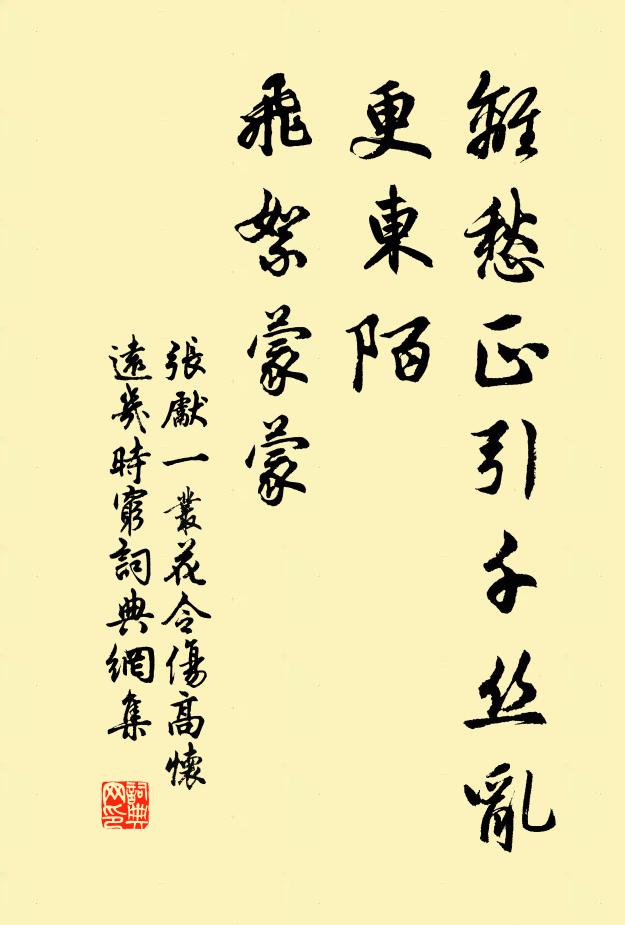 離愁正引千丝亂
更東陌
飛絮蒙蒙
張獻一叢花令傷高懷
遠幾時窮詞典網集
詞典
网印